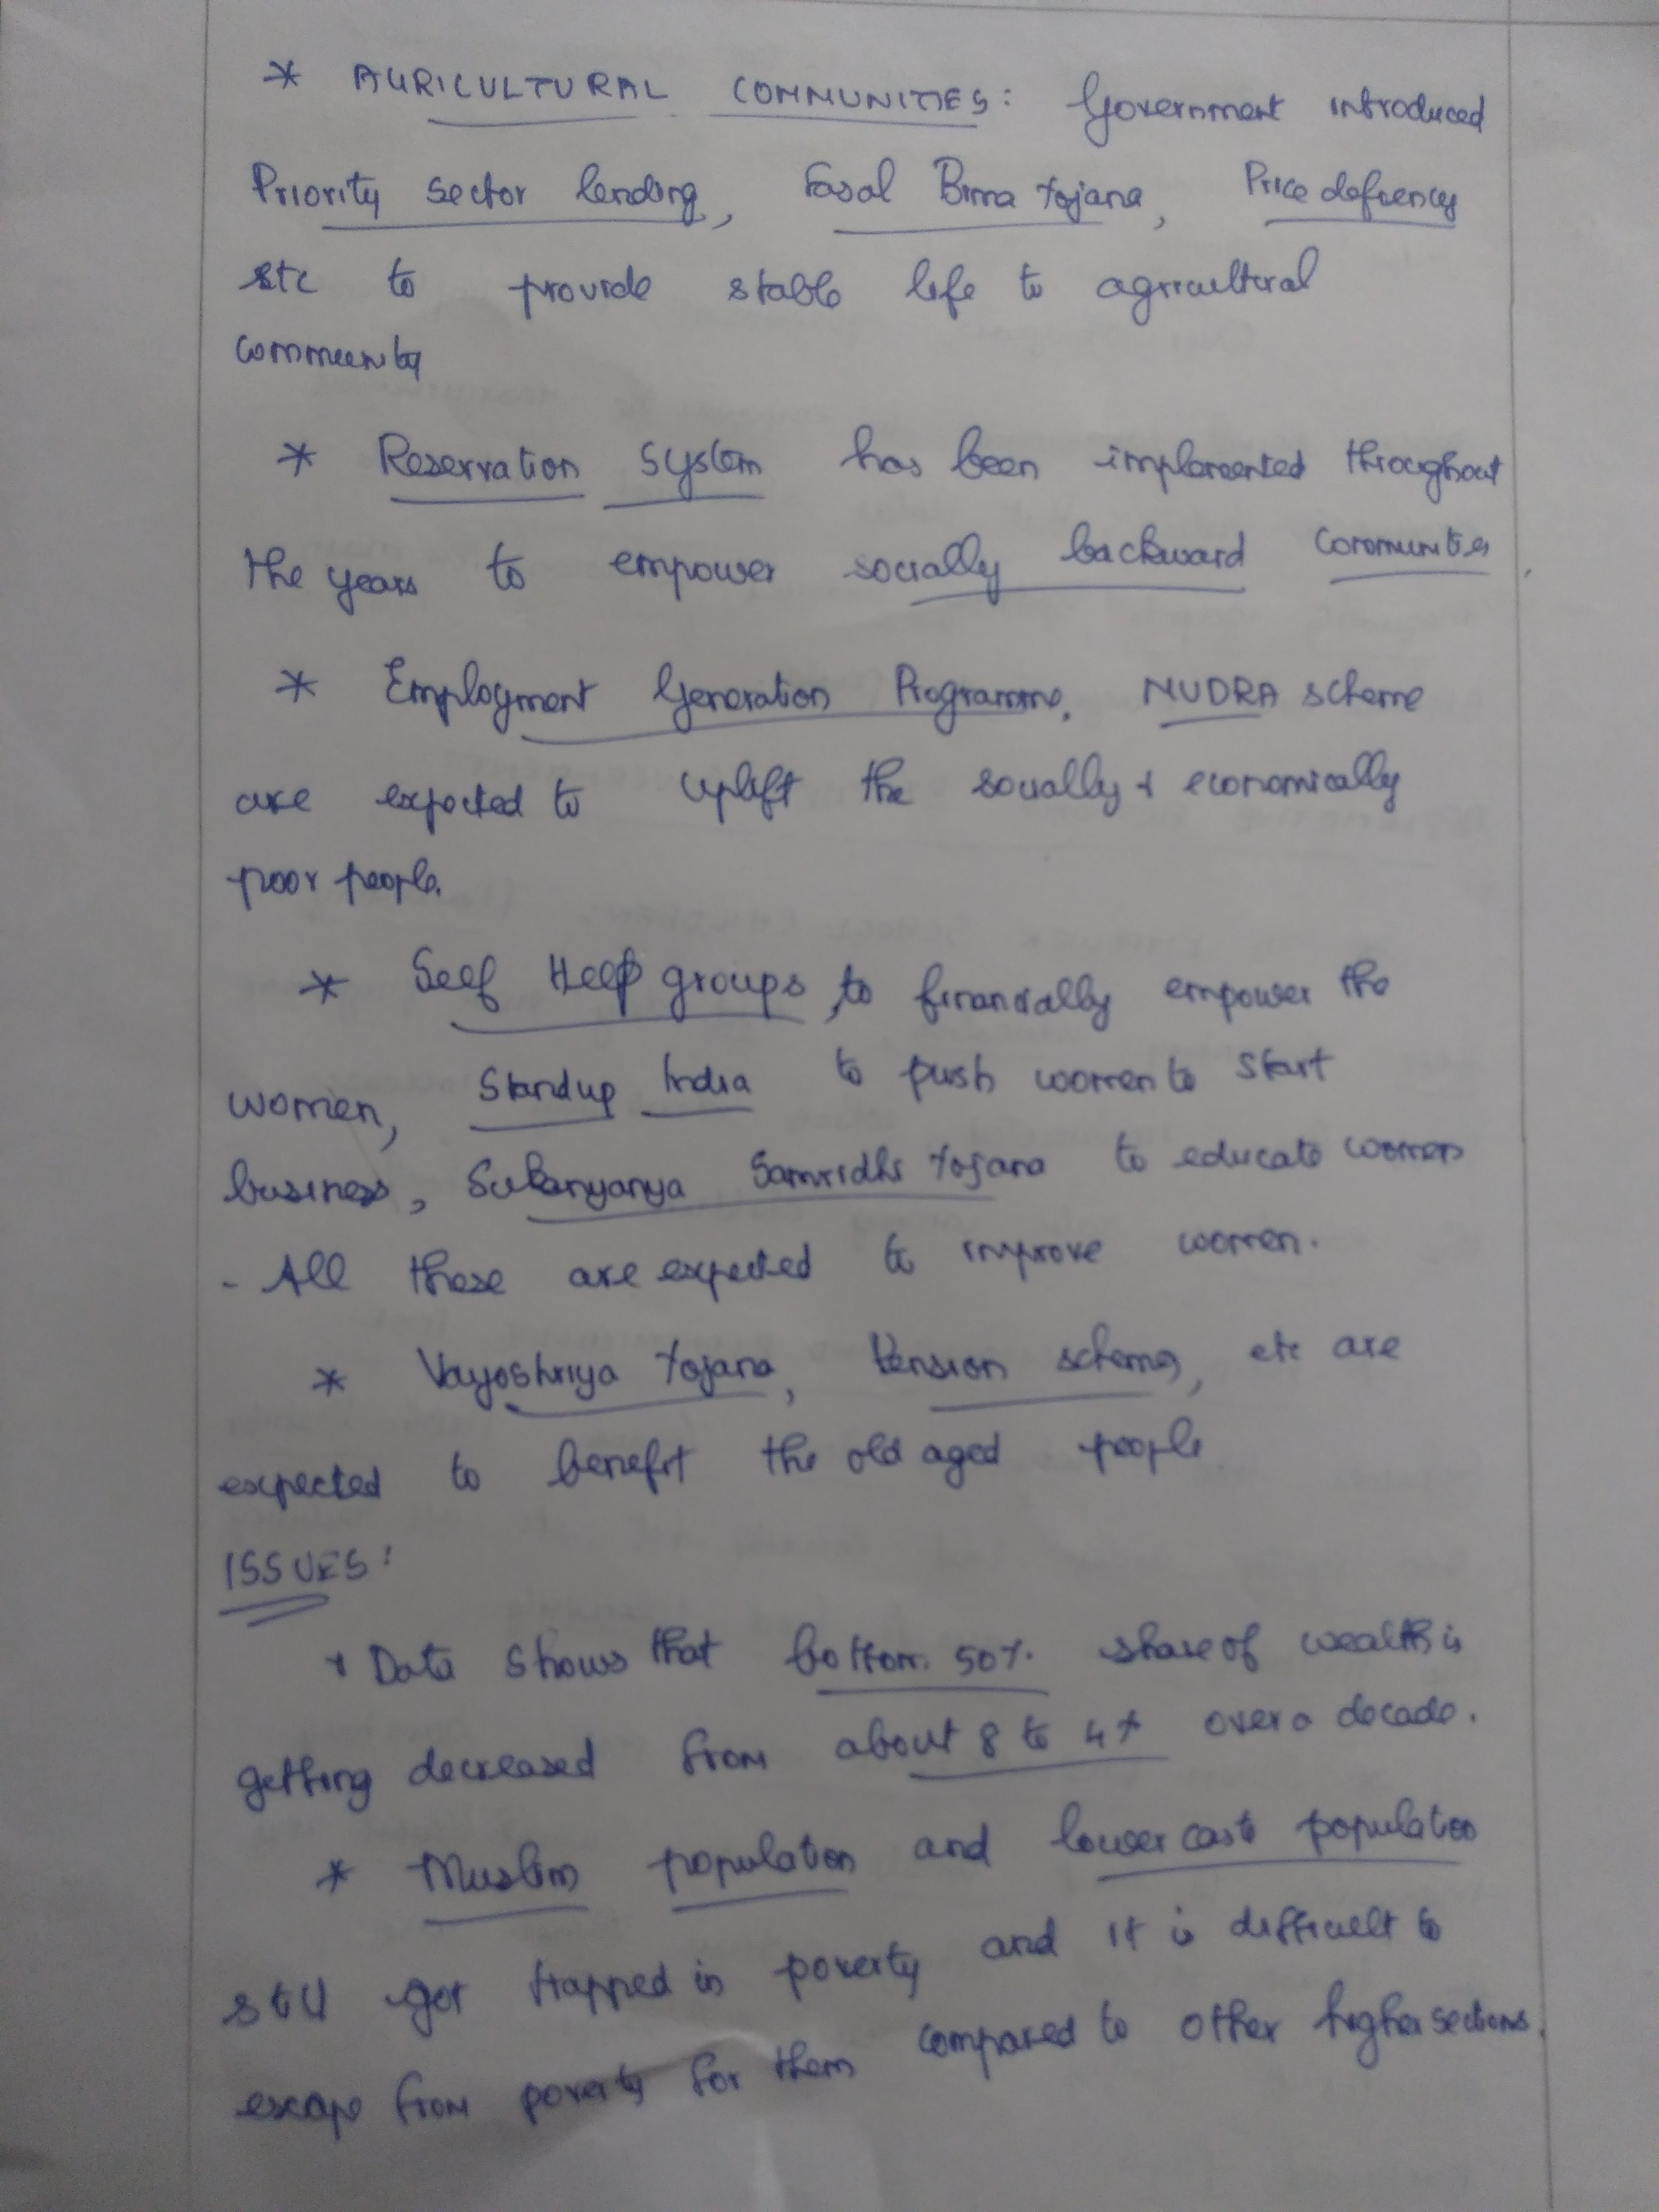 * AGRICULTURAL COMMUNITIES: Government introduced
Priority sector lending, Fasal Bima Yojana, Price defiency
etc to provide stable life to agricultural
community
* Reservation System has been implemented throughout
the years to empower socially backward communities.
* Employment Generation Programme, MUDRA scheme
are expected to uplift the socially & economically
poor people.
* Self Help groups, to financially empower the
women, Standup India to push women to start
business, Sukanyanya Samridhi Yojana to educate women
- All these are expected to improve women.
* Vayoshriya Yojana, Pension scheme, etc are
expected to benefit the old aged people
ISSUES:
* Data shows that bottom 50% share of wealth is
getting decreased from about 8 to 4% over a decade.
* Muslim population and lower caste population
still got trapped in poverty and it is difficult to
escape from poverty for them compared to other higher sections.